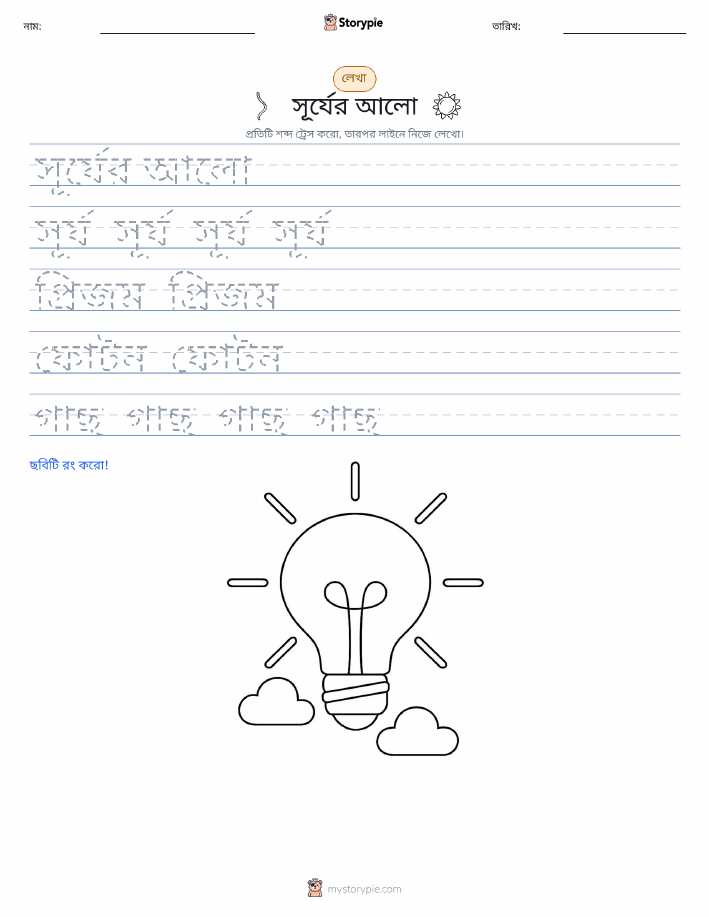 নাম:
Storypie
তারিখ:
লেখা
সূর্যের আলো
প্রতিটি শব্দ ট্রেস করো, তারপর লাইনে নিজে লেখো।
সূর্যের আলো
সূর্য সূর্য সূর্য সূর্য
প্রিজম প্রিজম
ফোটন ফোটন
গাছ গাছ গাছ গাছ
ছবিটি রং করো!
mystorypie.com